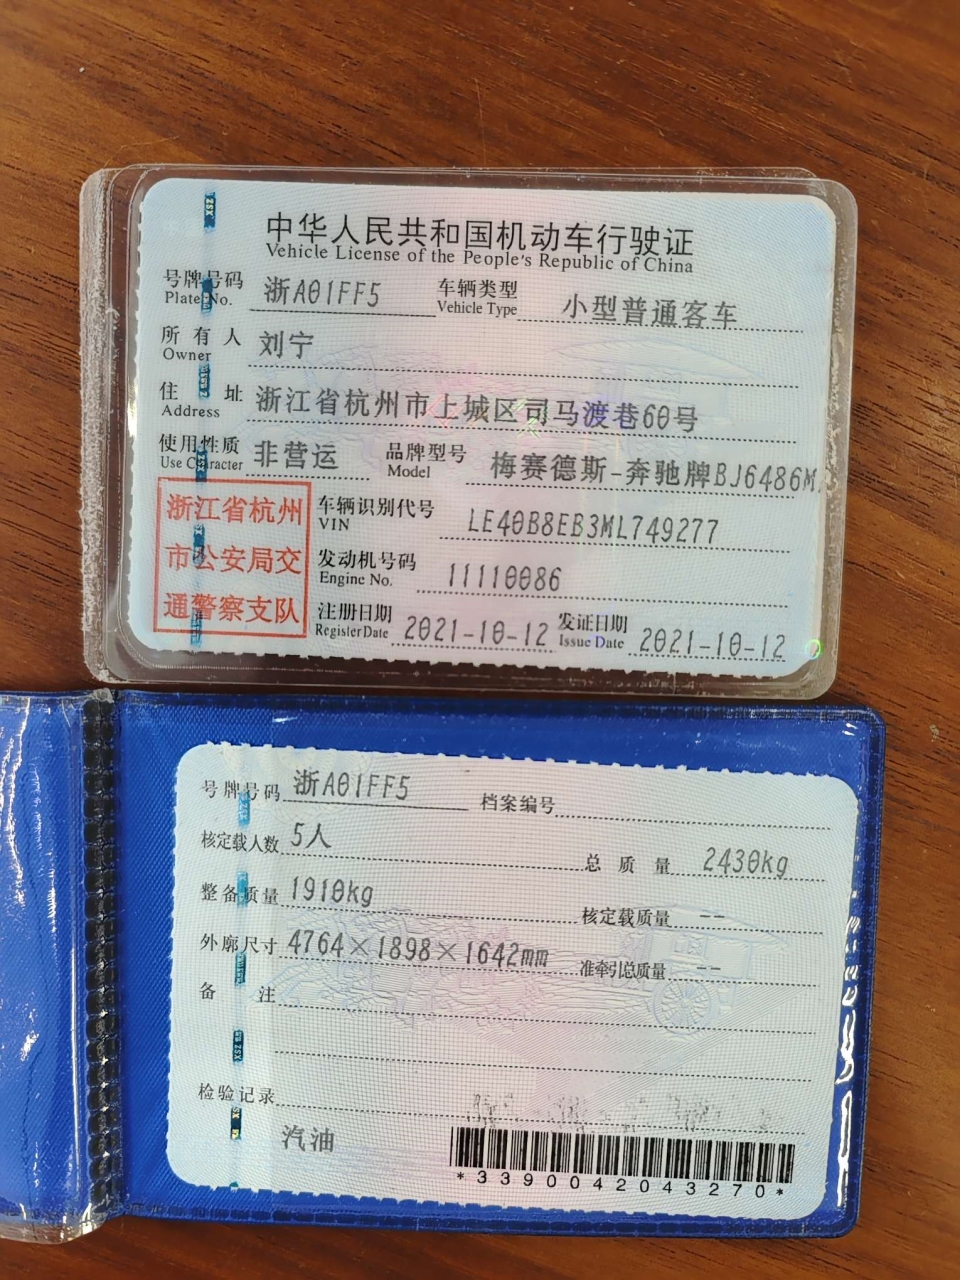 中华人民共和国机动车行驶证
Vehicle License of the People's Republic of China
号牌号码 浙A01FF5 车辆类型 小型普通客车
Plate No. Vehicle Type
所有人 刘宁
Owner
住址 浙江省杭州市上城区司马渡巷60号
Address
使用性质 非营运 品牌型号 梅赛德斯-奔驰牌BJ6486M
Use Character Model
浙江省杭州
市公安局交
通警察支队
车辆识别代号 LE40B8EB3ML749277
VIN
发动机号码 11110086
Engine No.
注册日期 2021-10-12 发证日期 2021-10-12
Register Date Issue Date
号牌号码 浙A01FF5 档案编号
核定载人数 5人 总质量 2430kg
整备质量 1910kg 核定载质量 --
外廓尺寸 4764×1898×1642mm 准牵引总质量 --
备注
检验记录
汽油
*3390042043270*